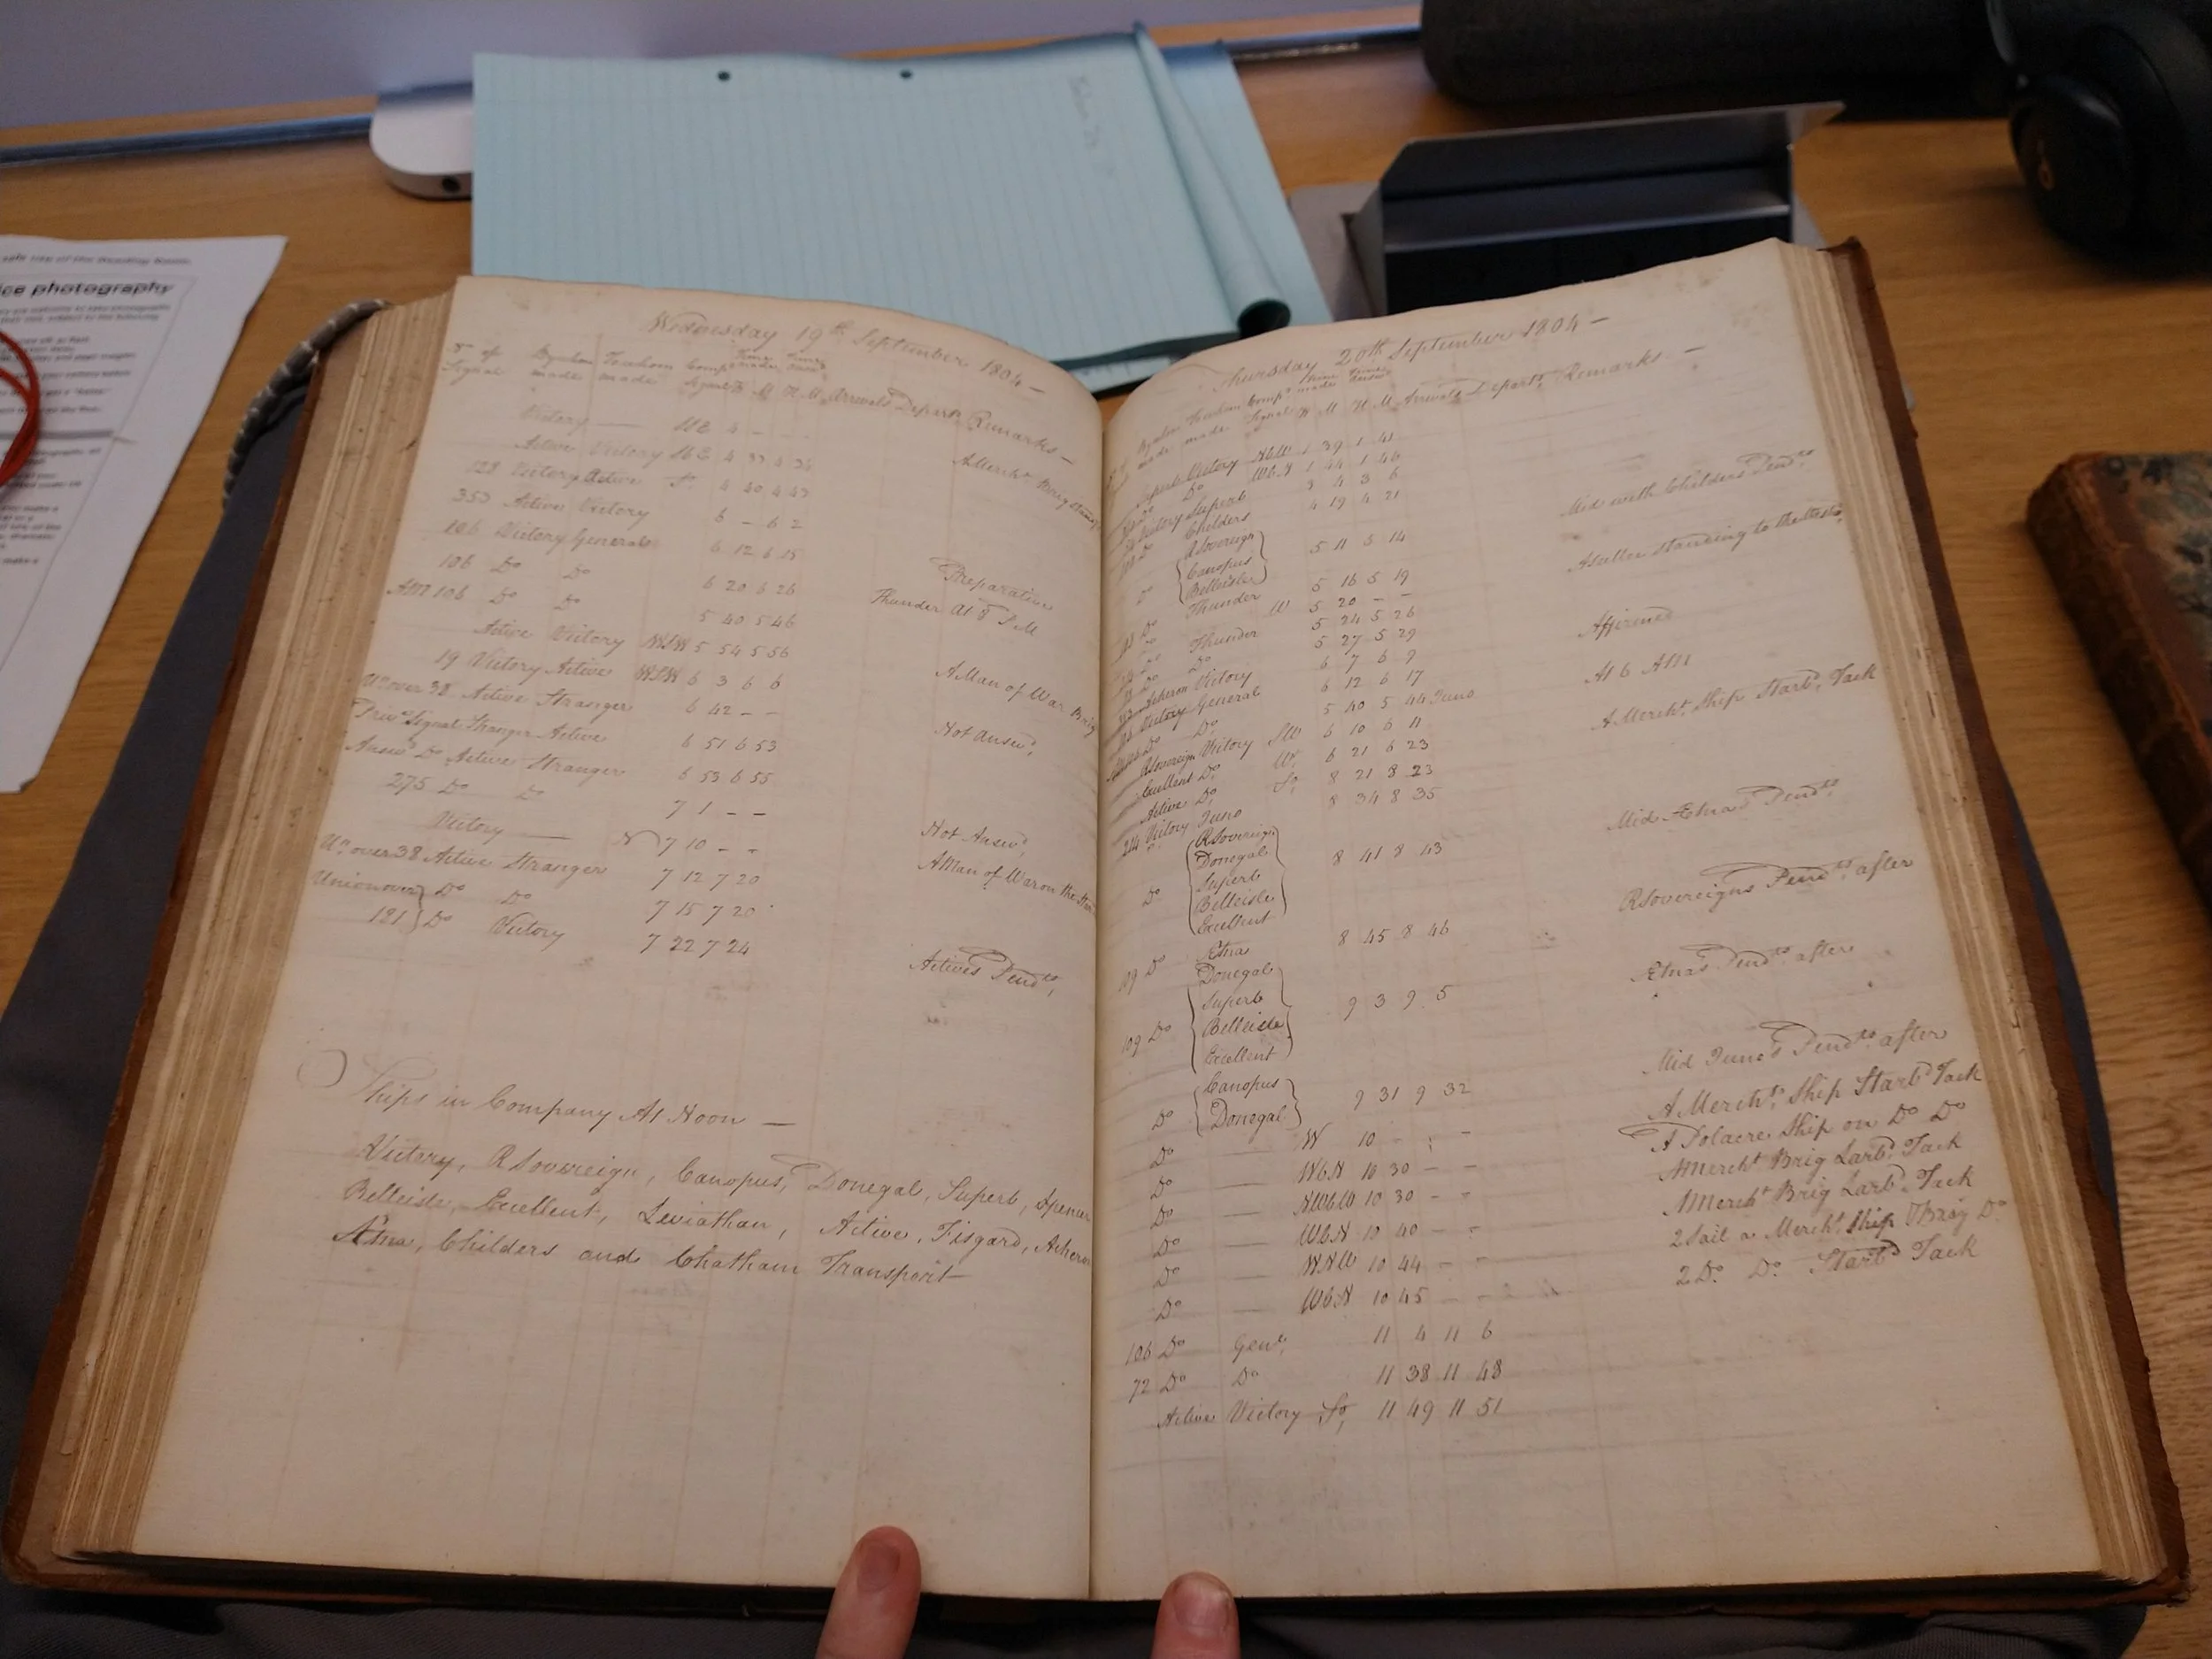 safe use of the Reading Room.
photography
Wednesday 19th September 1804 —
No. of Signal By whom made To whom made Comps. Signal H M H M Arrivals Depart. Remarks —
Victory — 4 - - -
Active Victory 4 33 4 34 A Mercht. Brig
128 Victory Active So. 4 40 4 43
353 Active Victory 6 - 6 2
106 Victory General 6 12 6 15 Preparative
106 Do Do 6 20 6 26 Thunder At 8 P.M
AM 106 Do Do 5 40 5 46
Active Victory WSW 5 54 5 56 A Man of War Brig
19 Victory Active WSW 6 3 6 6
Un. over 38 Active Stranger 6 42 - - Not Answd.
Priv. Signal Stranger Active 6 51 6 53
Answd. Do Active Stranger 6 53 6 55
275 Do Do 7 1 - - Not Answd.
Victory — N 7 10 - - A Man of War on the
Un. over 38 Active Stranger 7 12 7 20
Union over } Do Do 7 15 7 20
121 } Do Victory 7 22 7 24 Actives Pendts.
Ships in Company At Noon —
Victory, RSovereign, Canopus, Donegal, Superb, Spencer
Belleisle, Excellent, Leviathan, Active, Fisgard, Acheron
Ætna, Childers and Chatham Transport
Thursday 20th September 1804 —
By whom made To whom made Comps. Signal H M H M Arrivals Depart. Remarks —
Superb Victory NbW 1 39 1 41
Do WbN 1 44 1 46
Victory Superb 3 4 3 6
Do Childers 4 19 4 21 Mid with Childers Pendts.
Do { RSovereign
Canopus
Belleisle } 5 11 5 14 A Sullee standing to the
Do Thunder 5 16 5 19
Do W 5 20 - -
Do Thunder 5 24 5 26 Affirmed
Do Do 5 27 5 29
Acheron Victory 6 7 6 9 At 6 AM
Victory General 6 12 6 17
Do Do 5 40 5 44 Juno A Mercht. Ship Starbd. Tack
RSovereign Victory SW 6 10 6 11
Excellent Do W. 6 21 6 23
Active Do So. 8 21 8 23
214 Victory Juno 8 34 8 35 Mid Ætnas Pendts.
Do { RSovereign
Donegal
Superb
Belleisle
Excellent } 8 41 8 43 RSovereigns Pendts. after
109 Do Ætna 8 45 8 46 Ætnas Pendts. after
109 Do { Donegal
Superb
Belleisle
Excellent } 9 3 9 5
Do { Canopus
Donegal } 9 31 9 32 Mid Junos Pendts. after
Do — W 10 - - - A Mercht. Ship Starbd. Tack
Do — WbN 10 30 - - A Polacre Ship on Do Do
Do — NWbW 10 30 - - A Mercht. Brig Larbd. Tack
Do — WbN 10 40 - - A Mercht Brig Larbd. Tack
Do — WNW 10 44 - - 2 Sail a Mercht. Ship & Brig Do
Do — WbN 10 45 - - 2 Do. Do. Starbd. Tack
106 Do Genl. 11 4 11 6
72 Do Do 11 38 11 48
Active Victory So. 11 49 11 51